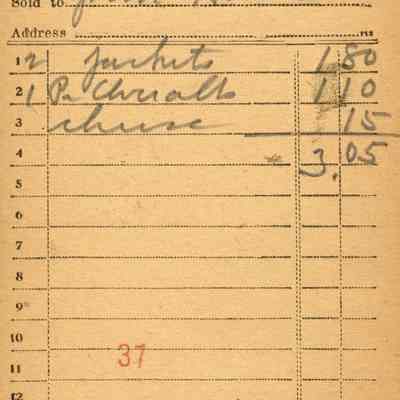 Sold to
Address
1 2 Jackets 1 80
2 1 Pr Overalls 1 10
3 cheese 15
4 3.05
5
6
7
8
9
10
11 37
12